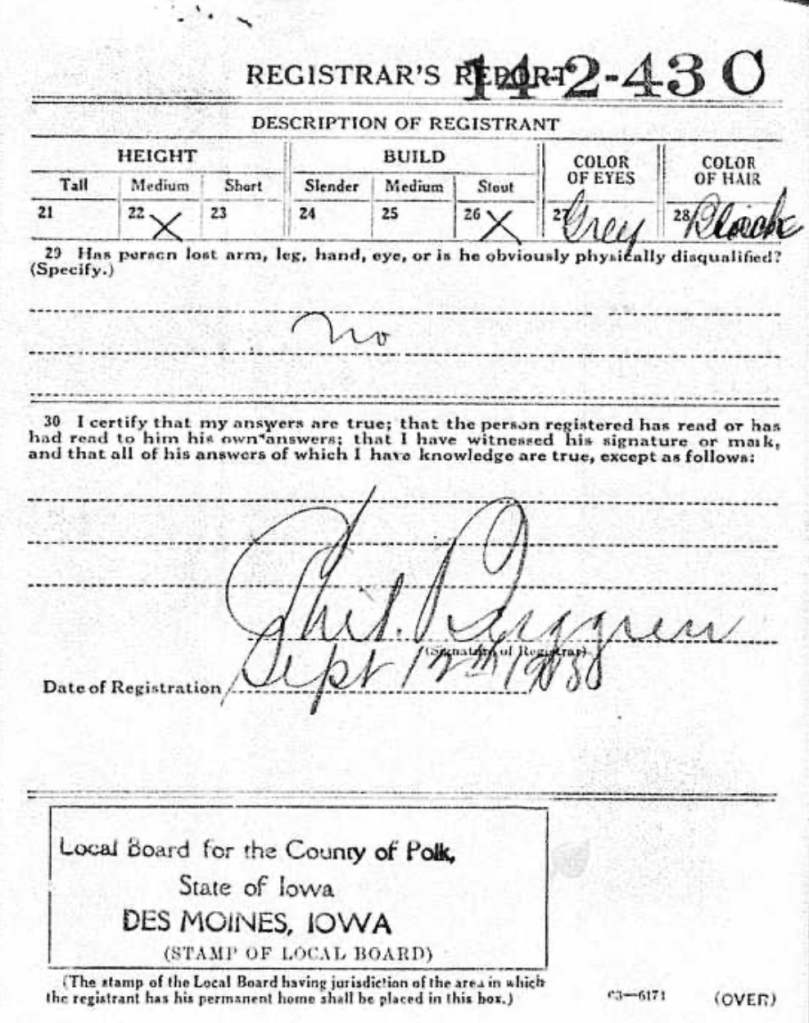 REGISTRAR'S REPORT 14-2-43 C
DESCRIPTION OF REGISTRANT
HEIGHT BUILD COLOR OF EYES COLOR OF HAIR
Tall Medium Short Slender Medium Stout
21 22 X 23 24 25 26 X 27 Grey 28 Black
29 Has person lost arm, leg, hand, eye, or is he obviously physically disqualified?
(Specify.)
No
30 I certify that my answers are true; that the person registered has read or has
had read to him his own answers; that I have witnessed his signature or mark,
and that all of his answers of which I have knowledge are true, except as follows:
Phil. Berggren
(Signature of Registrar)
Date of Registration Sept 12th
Local Board for the County of Polk,
State of Iowa
DES MOINES, IOWA
(STAMP OF LOCAL BOARD)
(The stamp of the Local Board having jurisdiction of the area in which
the registrant has his permanent home shall be placed in this box.)
03—6171 (OVER)